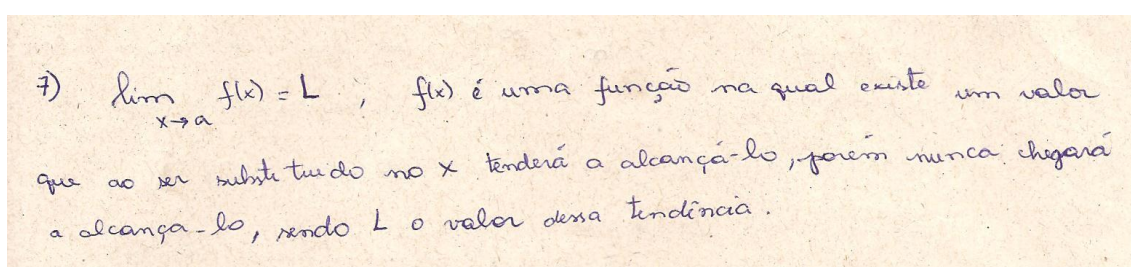 7) lim f(x) = L , f(x) é uma função na qual existe um valor
x→a
que ao ser substituido no x tenderá a alcançá-lo, porém nunca chegará
a alcança-lo, sendo L o valor dessa tendência.